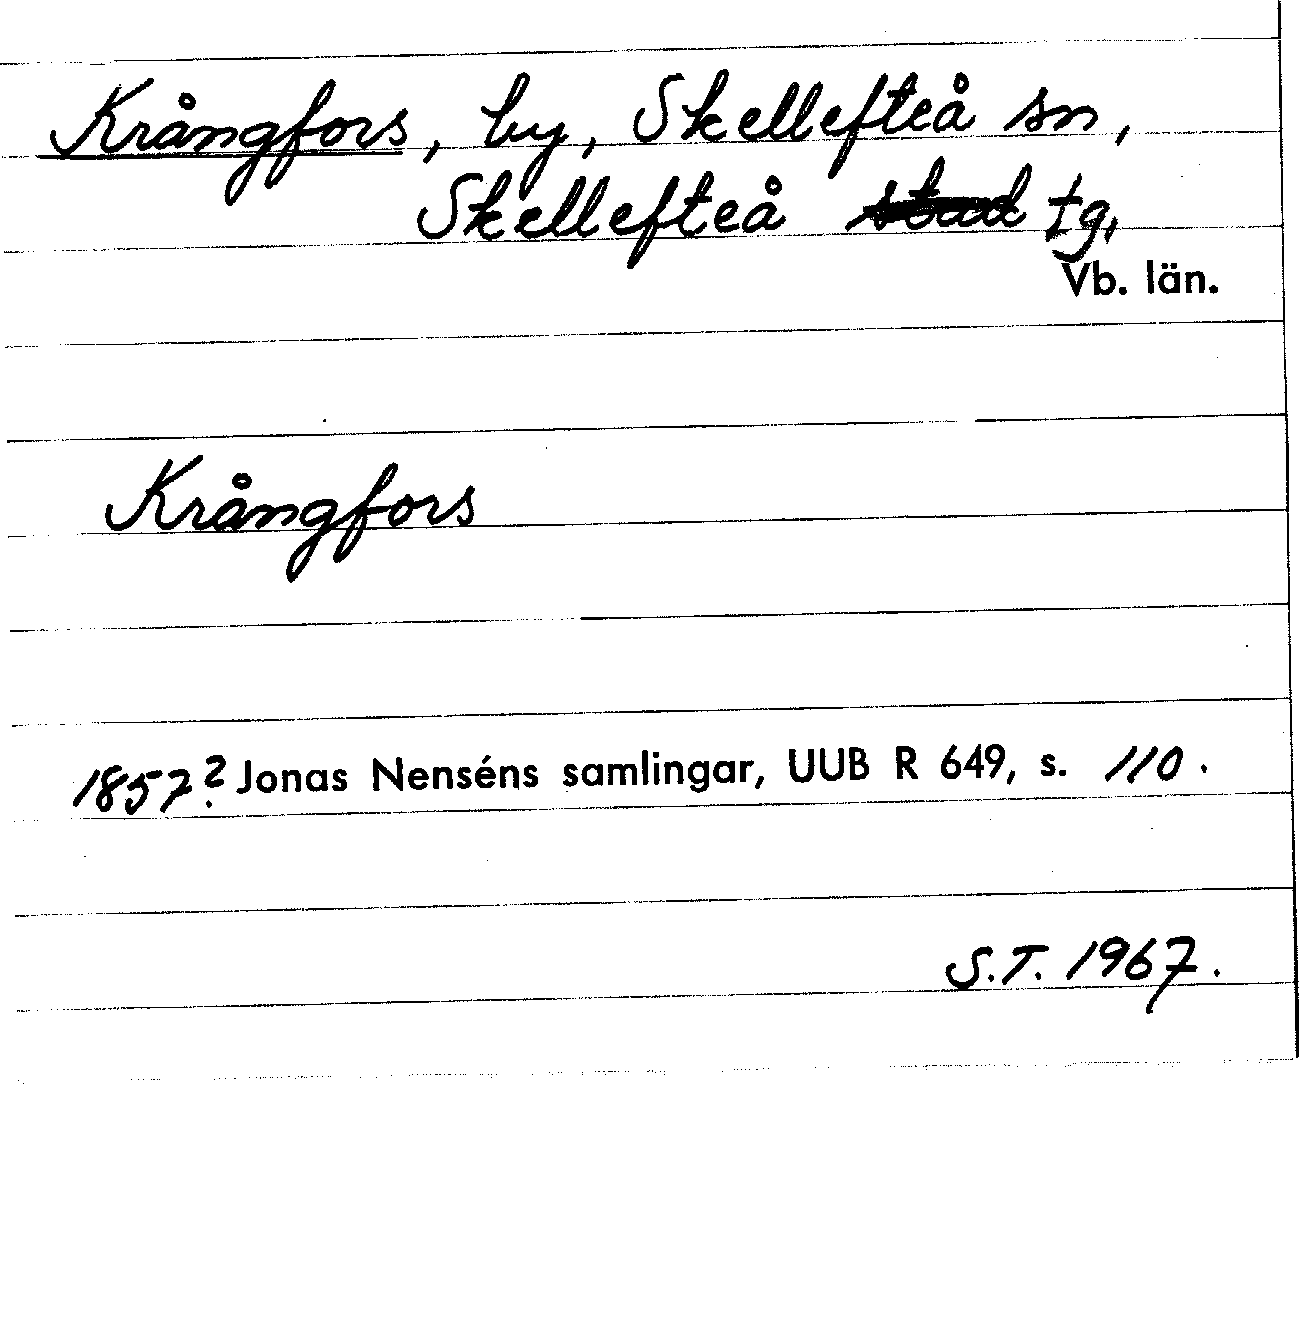 Krångfors, by, Skellefteå sn,
Skellefteå stad tg,
Vb. län.
Krångfors
1857? Jonas Nenséns samlingar, UUB R 649, s. 110.
S.T. 1967.